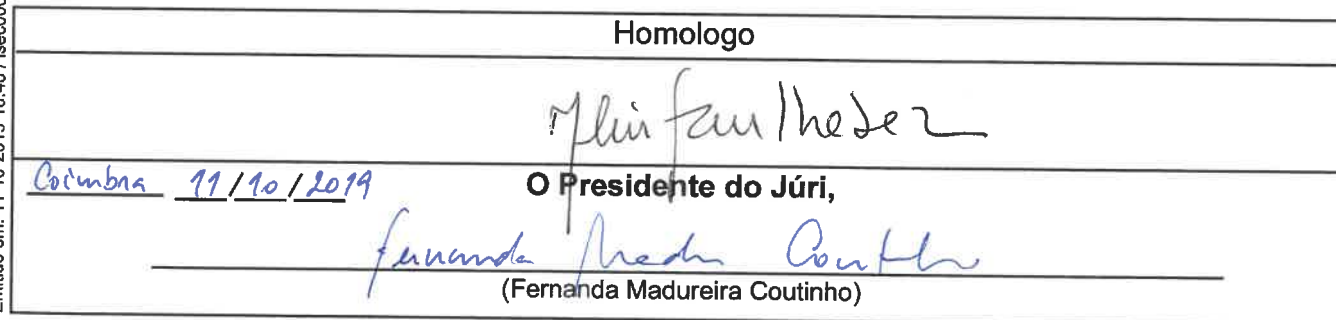 Homologo
Coimbra 11/10/2019
O Presidente do Júri,
Fernanda Coutinho
(Fernanda Madureira Coutinho)